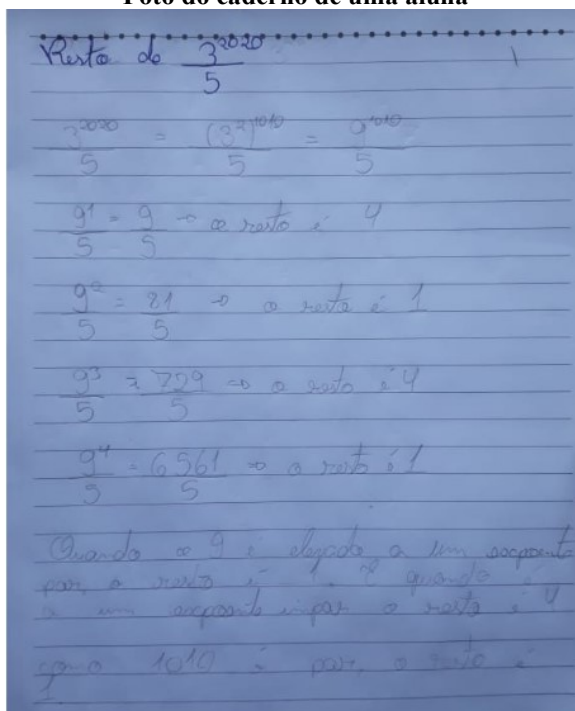 Foto do caderno de uma aluna
Resto de 3^2020/5
3^2020/5 = (3^2)^1010/5 = 9^1010/5
9^1/5 = 9/5 → o resto é 4
9^2/5 = 81/5 → o resto é 1
9^3/5 = 729/5 → o resto é 4
9^4/5 = 6561/5 → o resto é 1
Quando o 9 é elegado a um expoente
par, o resto é 1. E quando é
a um expoente impar o resto é 4
como 1010 é par, o resto é
1